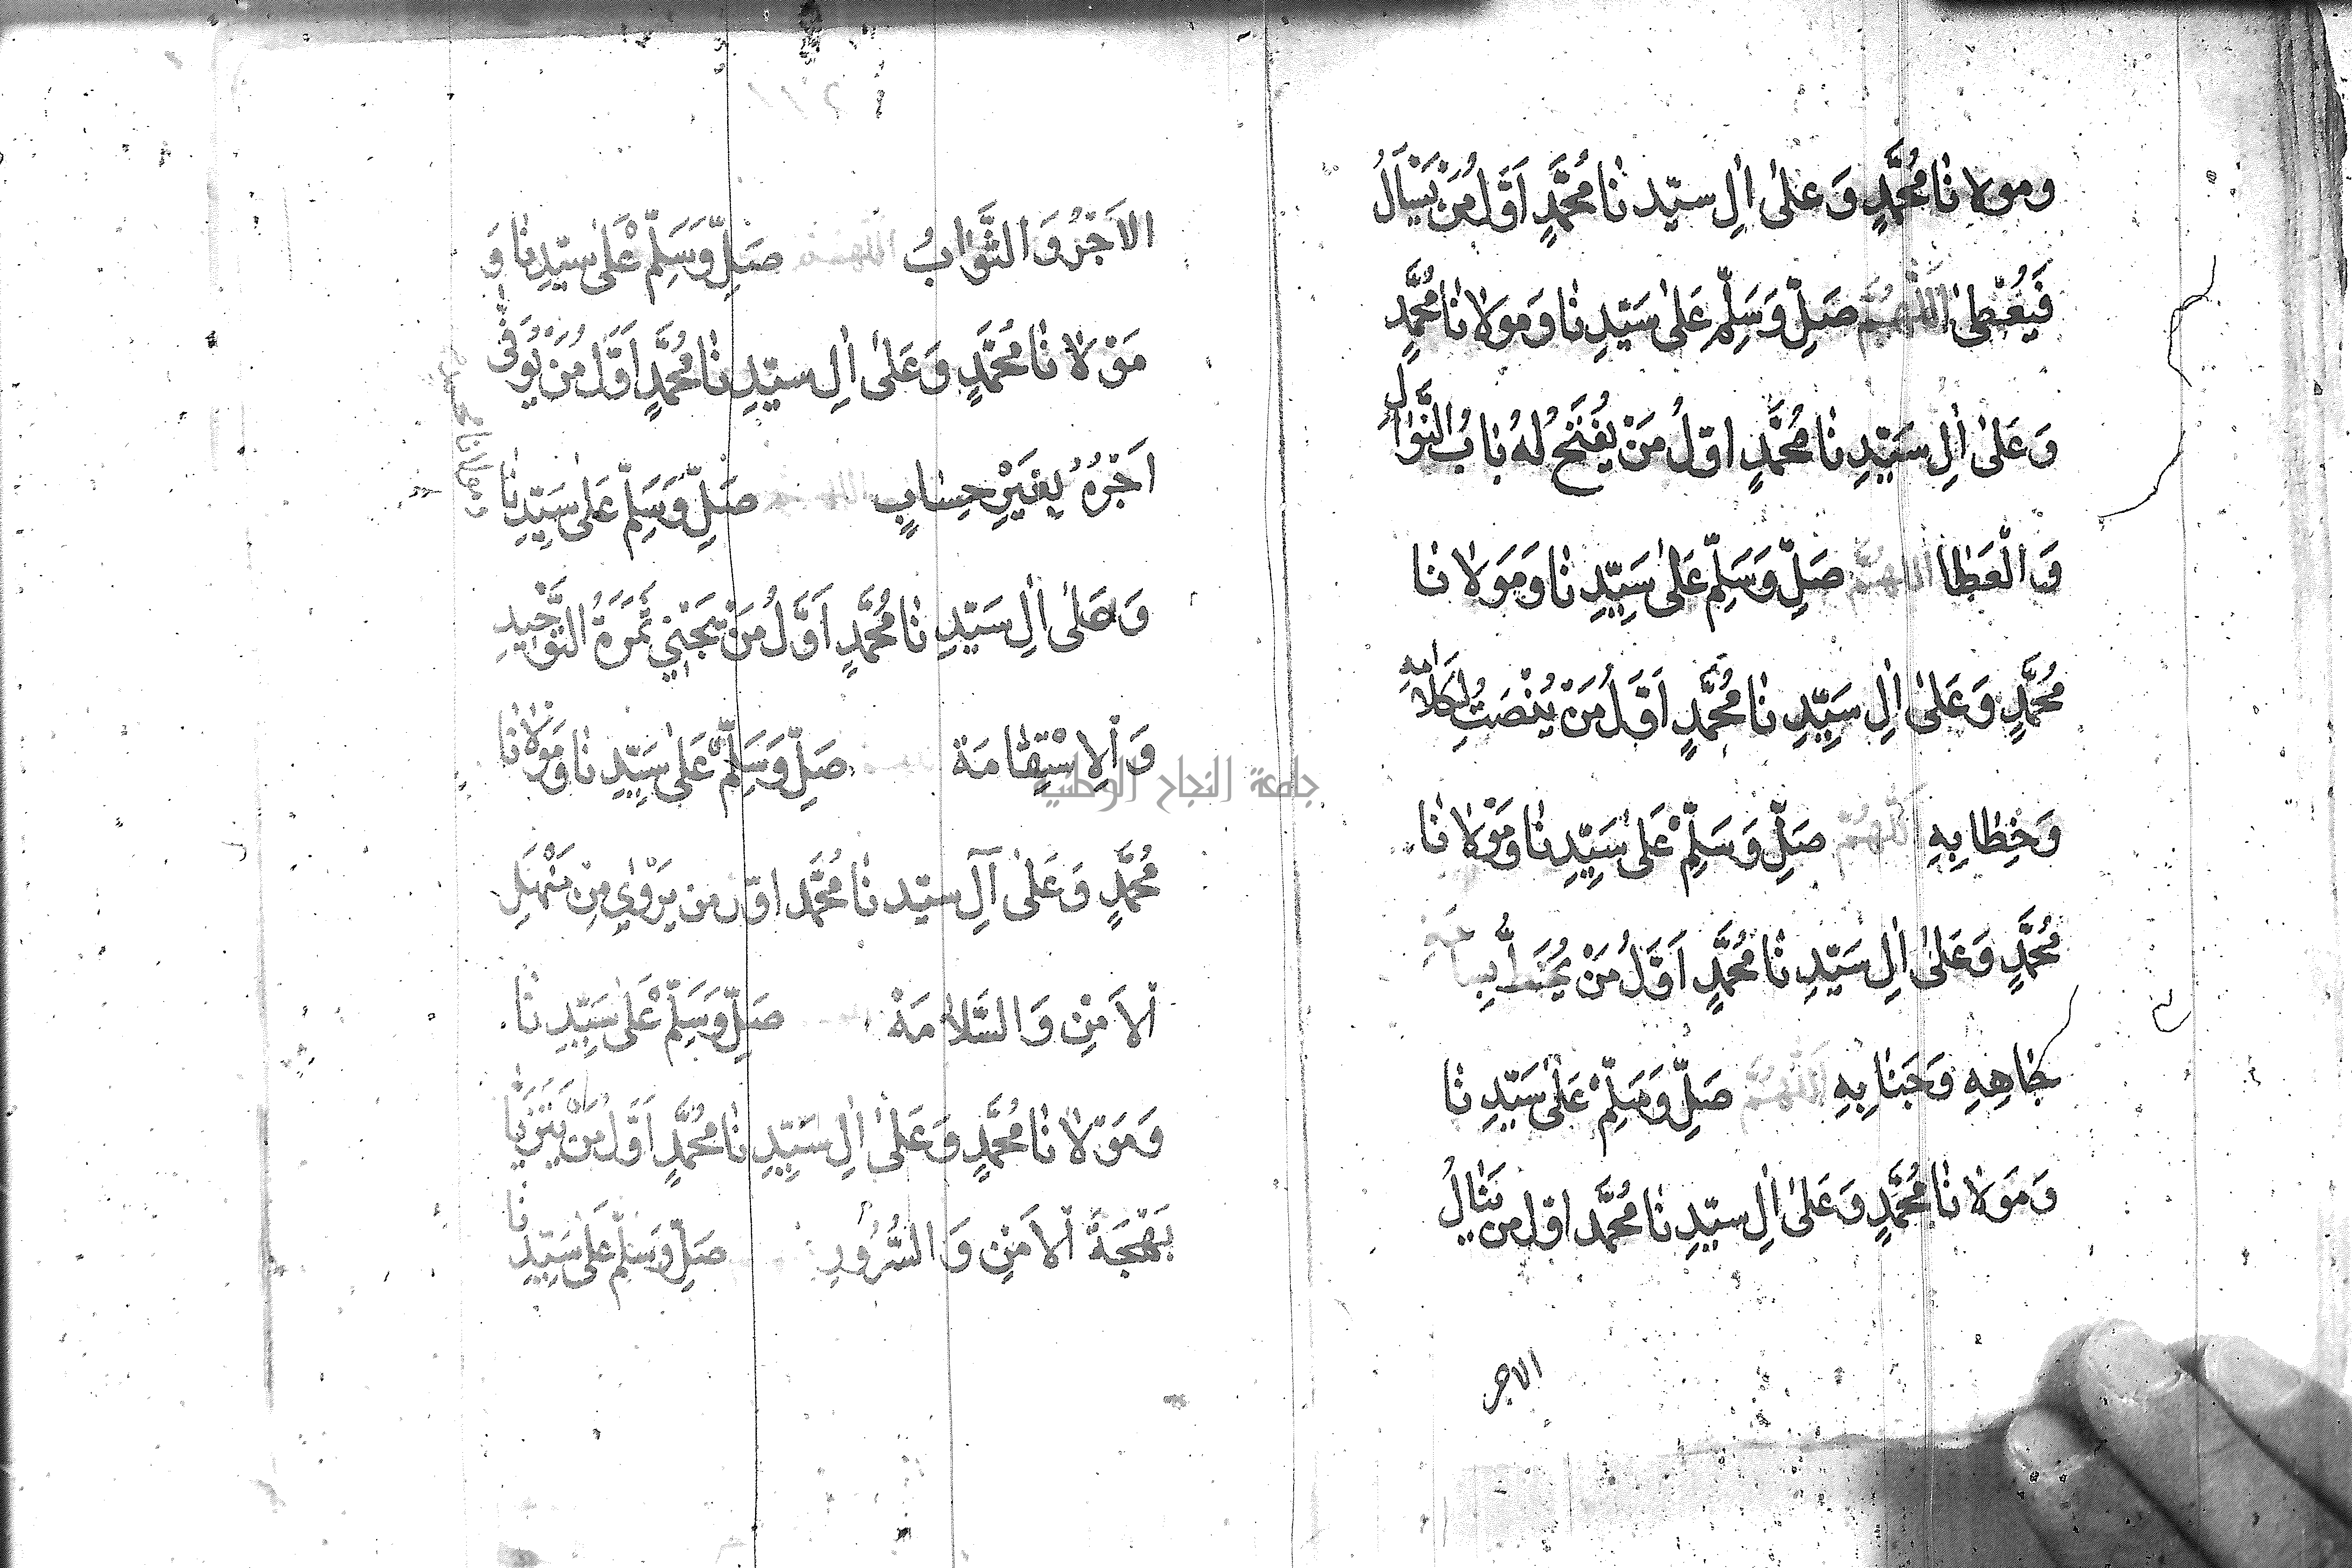 ومولانا مُحَمَّدٍ وَعلىٰ اٰلِ سيّدنا مُحَمَّدٍ اَوَّلُ مَنْ يَسْأَلُ
فَيُعْطىٰ اَللّٰهُمَّ صَلِّ وَسَلِّمْ عَلىٰ سَيّدِنا وَمَوْلانا مُحَمَّدٍ
وَعَلىٰ اٰلِ سَيّدِنا مُحَمَّدٍ اوّلُ مَنْ يُفْتَحُ لَهُ بابُ النَّوالِ
وَالْعَطا اَللّٰهُمَّ صَلِّ وَسَلِّمْ عَلىٰ سَيِّدِنا وَمَوَلانا
مُحَمَّدٍ وَعَلىٰ اٰلِ سَيِّدِنا مُحَمَّدٍ اَوَّلُ مَنْ يُنْصَتُ لِكَلامِهِ
وَخِطابِهِ اَللّٰهُمَّ صَلِّ وَسَلِّمْ عَلىٰ سَيِّدِنا وَمَوْلانا
مُحَمَّدٍ وَعَلىٰ اٰلِ سَيّدِنا مُحَمَّدٍ اَوَّلُ مَنْ يُحَطُّ
بجاهِهِ وَجَنابِهِ اَللّٰهُمَّ صَلِّ وَسَلِّمْ عَلىٰ سَيّدِنا
وَمَوَلانا مُحَمَّدٍ وَعَلىٰ اٰلِ سيّدِنا مُحَمَّد اوّل من يَنالُ
الاجر
الاَجْرُ وَالثَّوابُ اللّهمّ صَلِّ وَسَلِّمْ عْلىٰ سيّدِنا وَ
مَوْلانا مُحَمَّدٍ وَعَلىٰ اٰلِ سيّدِنا مُحَمَّدٍ اَوَّلُ مَنْ يُوَفّٰى
اَجْرُهُ بِغَيْرِ حِسابٍ صَلِّ وَسَلِّمْ عَلىٰ سَيّدِنا
ومولانا محمد
وَعَلىٰ اٰلِ سَيّدِنا مُحَمَّدٍ اَوَّلُ مَنْ يَجْتَنِي ثَمَرَةُ التَّوْحيدِ
وَاْلاِسْتِقامَة صَلِّ وَسَلِّمْ عَلىٰ سَيّدِنا وَمَوْلانا
مُحَمَّدٍ وَعَلىٰ آلِ سيّدنا مُحَمَّد اوّل من يَرْوِي مِنْ مَنْهَلِ
اْلاَمْنِ وَالسَّلامَةْ صَلِّ وَسَلِّمْ عْلىٰ سَيِّدِنا
وَمَوْلانا مُحَمَّدٍ وَعَلىٰ اٰلِ سَيِّدِنا مُحَمَّدٍ اَوَّلُ مَنْ يَتَزَيّا
بَهْجَةَ اْلاَمْنِ وَالسُّرُورِ صَلِّ وَسَلِّمْ عَلىٰ سَيِّدِنا
جامعة النجاح الوطنية